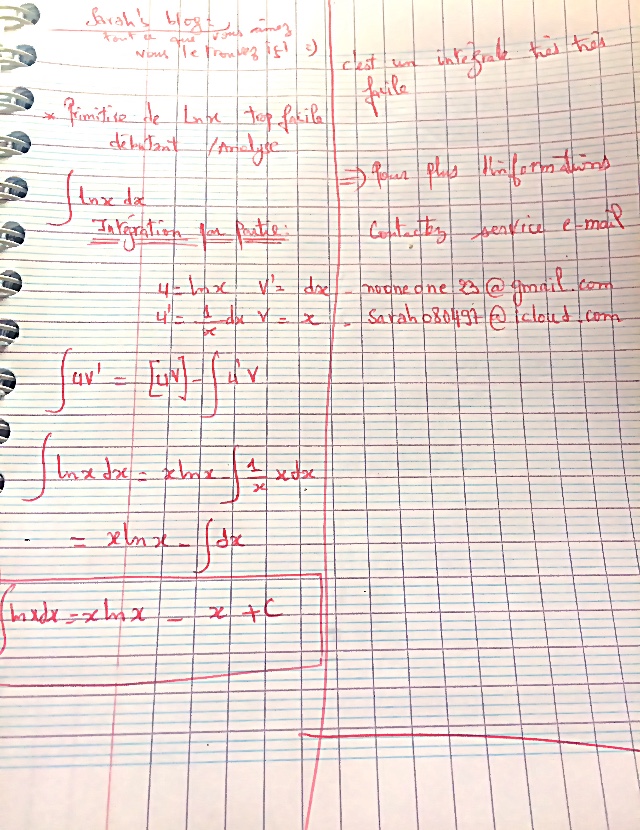 Sarah's blog:
tout ce que vous aimez
vous le trouvez ici :)
* Primitive de lnx top facile
débutant /Analyse
∫lnx dx
Intégration par partie:
u = lnx v' = dx
u' = 1/x dx v = x
∫uv' = [uv] - ∫u'v
∫lnx dx = xlnx ∫ 1/x x dx
= xlnx - ∫dx
∫lnxdx = xlnx - x + C
c'est un intégrale très très
facile
=> Pour plus d'informations
Contactez service e-mail
- nooneone.23@gmail.com
- Sarah080497@icloud.com